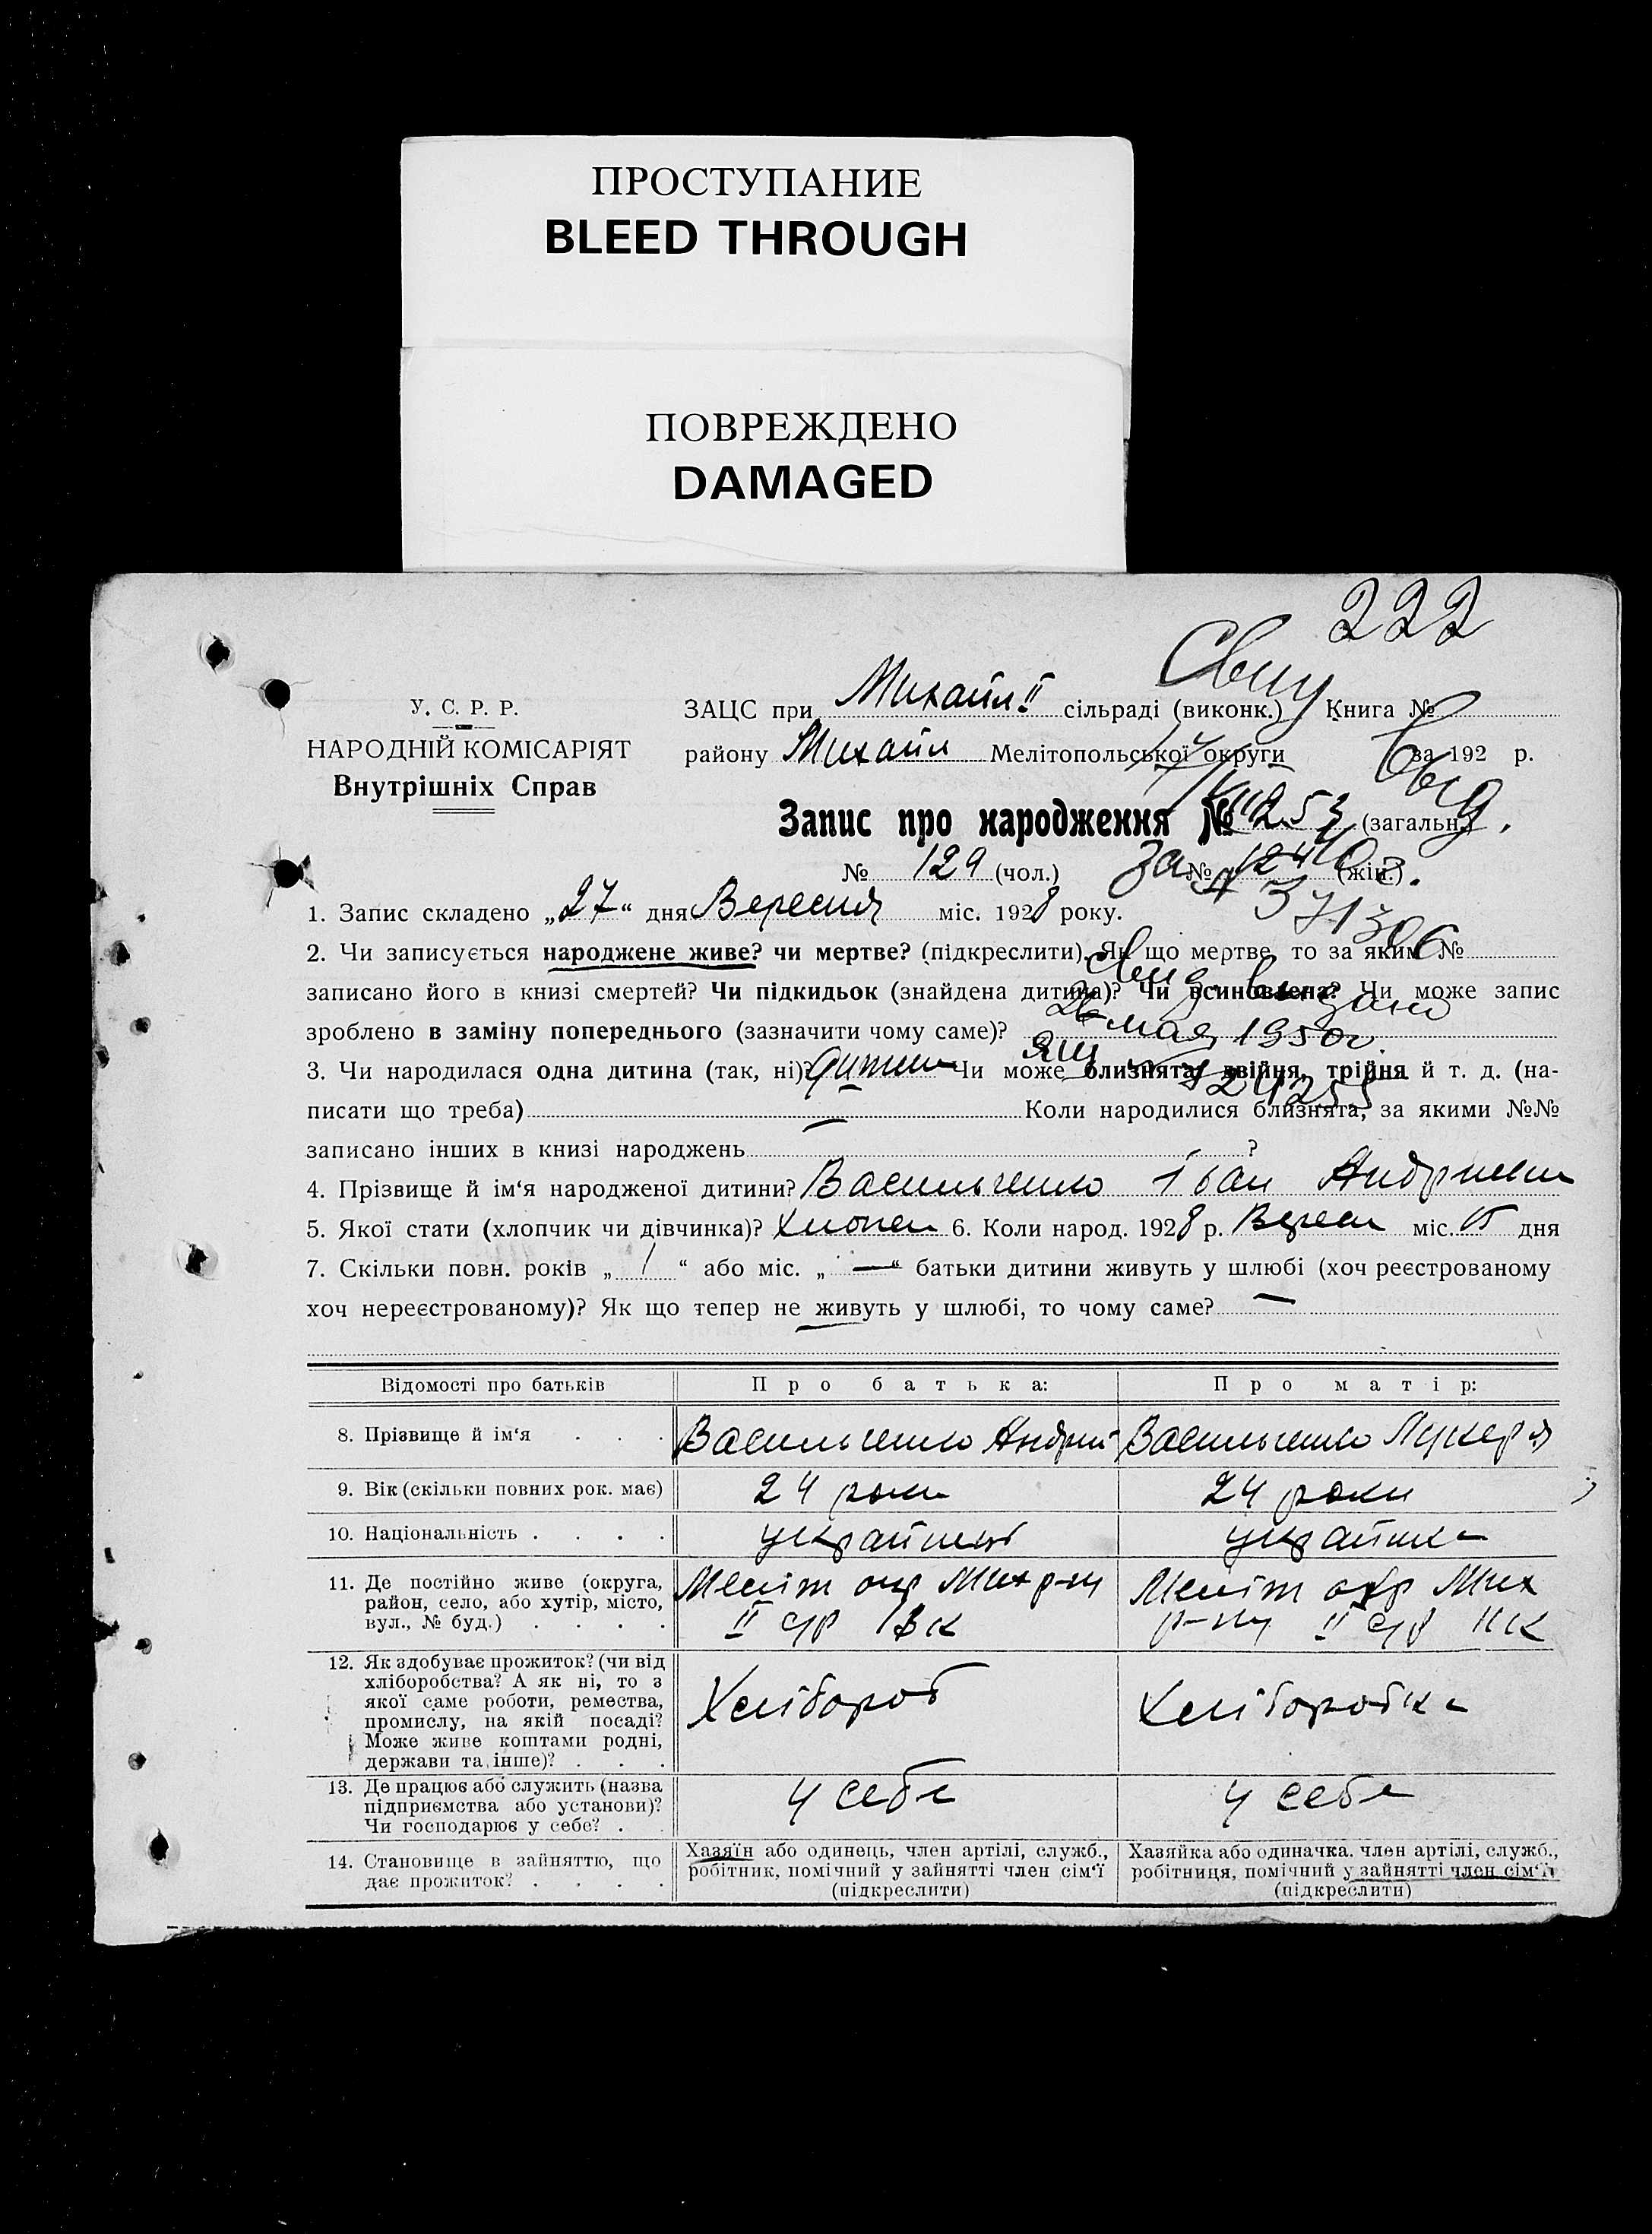 ПРОСТУПАНИЕ
BLEED THROUGH
ПОВРЕЖДЕНО
DAMAGED
222
У. С. Р. Р.
НАРОДНІЙ КОМІСАРІЯТ
Внутрішніх Справ
ЗАЦС при Михайл II сільраді (виконк.) Книга №
району Михайл Мелітопольської округи за 192 р.
Запис про народження № 253 (загальн.)
№ 129 (чол.) № 124 (жін.)
1. Запис складено „27“ дня Вересня міс. 1928 року.
2. Чи записується народжене живе? чи мертве? (підкреслити). Як що мертве, то за яким №
записано його в книзі смертей? Чи підкидьок (знайдена дитина)? Чи всиновлена? Чи може запис
зроблено в заміну попереднього (зазначити чому саме)?
26 мая 1950г.
3. Чи народилася одна дитина (так, ні)? Чи може близнята, двійня, трійня й т. д. (на-
писати що треба) Коли народилися близнята, за якими №№
записано інших в книзі народжень ?
4. Прізвище й ім‘я народженої дитини? Васильченко Іван Андрієв
5. Якої стати (хлопчик чи дівчинка)? Хлопец 6. Коли народ. 1928 р. Вересн міс. 15 дня
7. Скільки повн. років „ 1 “ або міс. „ — “ батьки дитини живуть у шлюбі (хоч реєстрованому
хоч нереєстрованому)? Як що тепер не живуть у шлюбі, то чому саме? —
Відомості про батьків Про батька: Про матір:
8. Прізвище й ім‘я Васильченко Андрий Васильченко Лукеря
9. Вік (скільки повних рок. має) 24 роки 24 роки
10. Національність українець українка
11. Де постійно живе (округа,
район, село, або хутір, місто,
вул., № буд.)
Меліт окр Мих р-ну
II с/р
Меліт окр Мих
р-ну II с/р
12. Як здобуває прожиток? (чи від
хліборобства? А як ні, то з
якої саме роботи, ремества,
промислу, на якій посаді?
Може живе коштами родні,
держави та інше)?
Хлібороб Хліборобка
13. Де працює або служить (назва
підприємства або установи)?
Чи господарює у себе?
У себе У себе
14. Становище в зайняттю, що
дає прожиток?
Хазяїн або одинець, член артілі, служб.,
робітник, помічний у зайнятті член сім‘ї
(підкреслити)
Хазяйка або одиначка. член артілі, служб.,
робітниця, помічний у зайнятті член сім‘ї
(підкреслити)